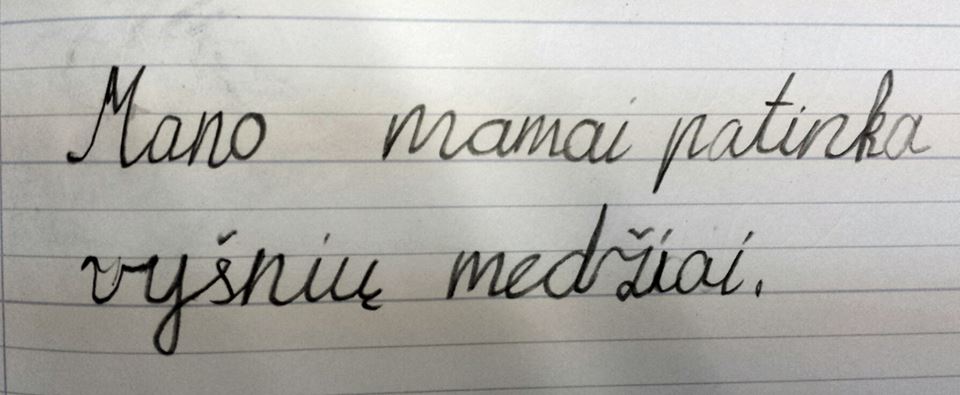 Mano mamai patinka
vyšnių medžiai.